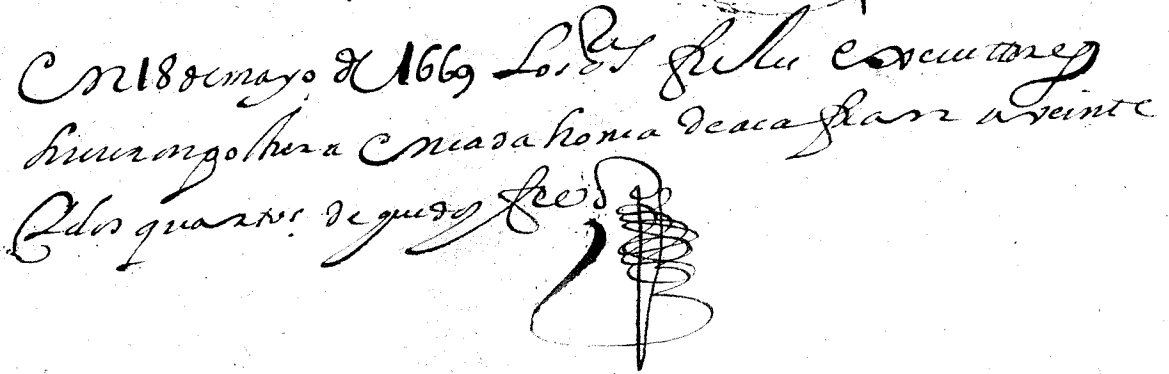 En 18 de mayo de 1669 Los SSres fieles executores
hicieron postura En cada honça de açafran a veinte
E dos quartos de que doy fee